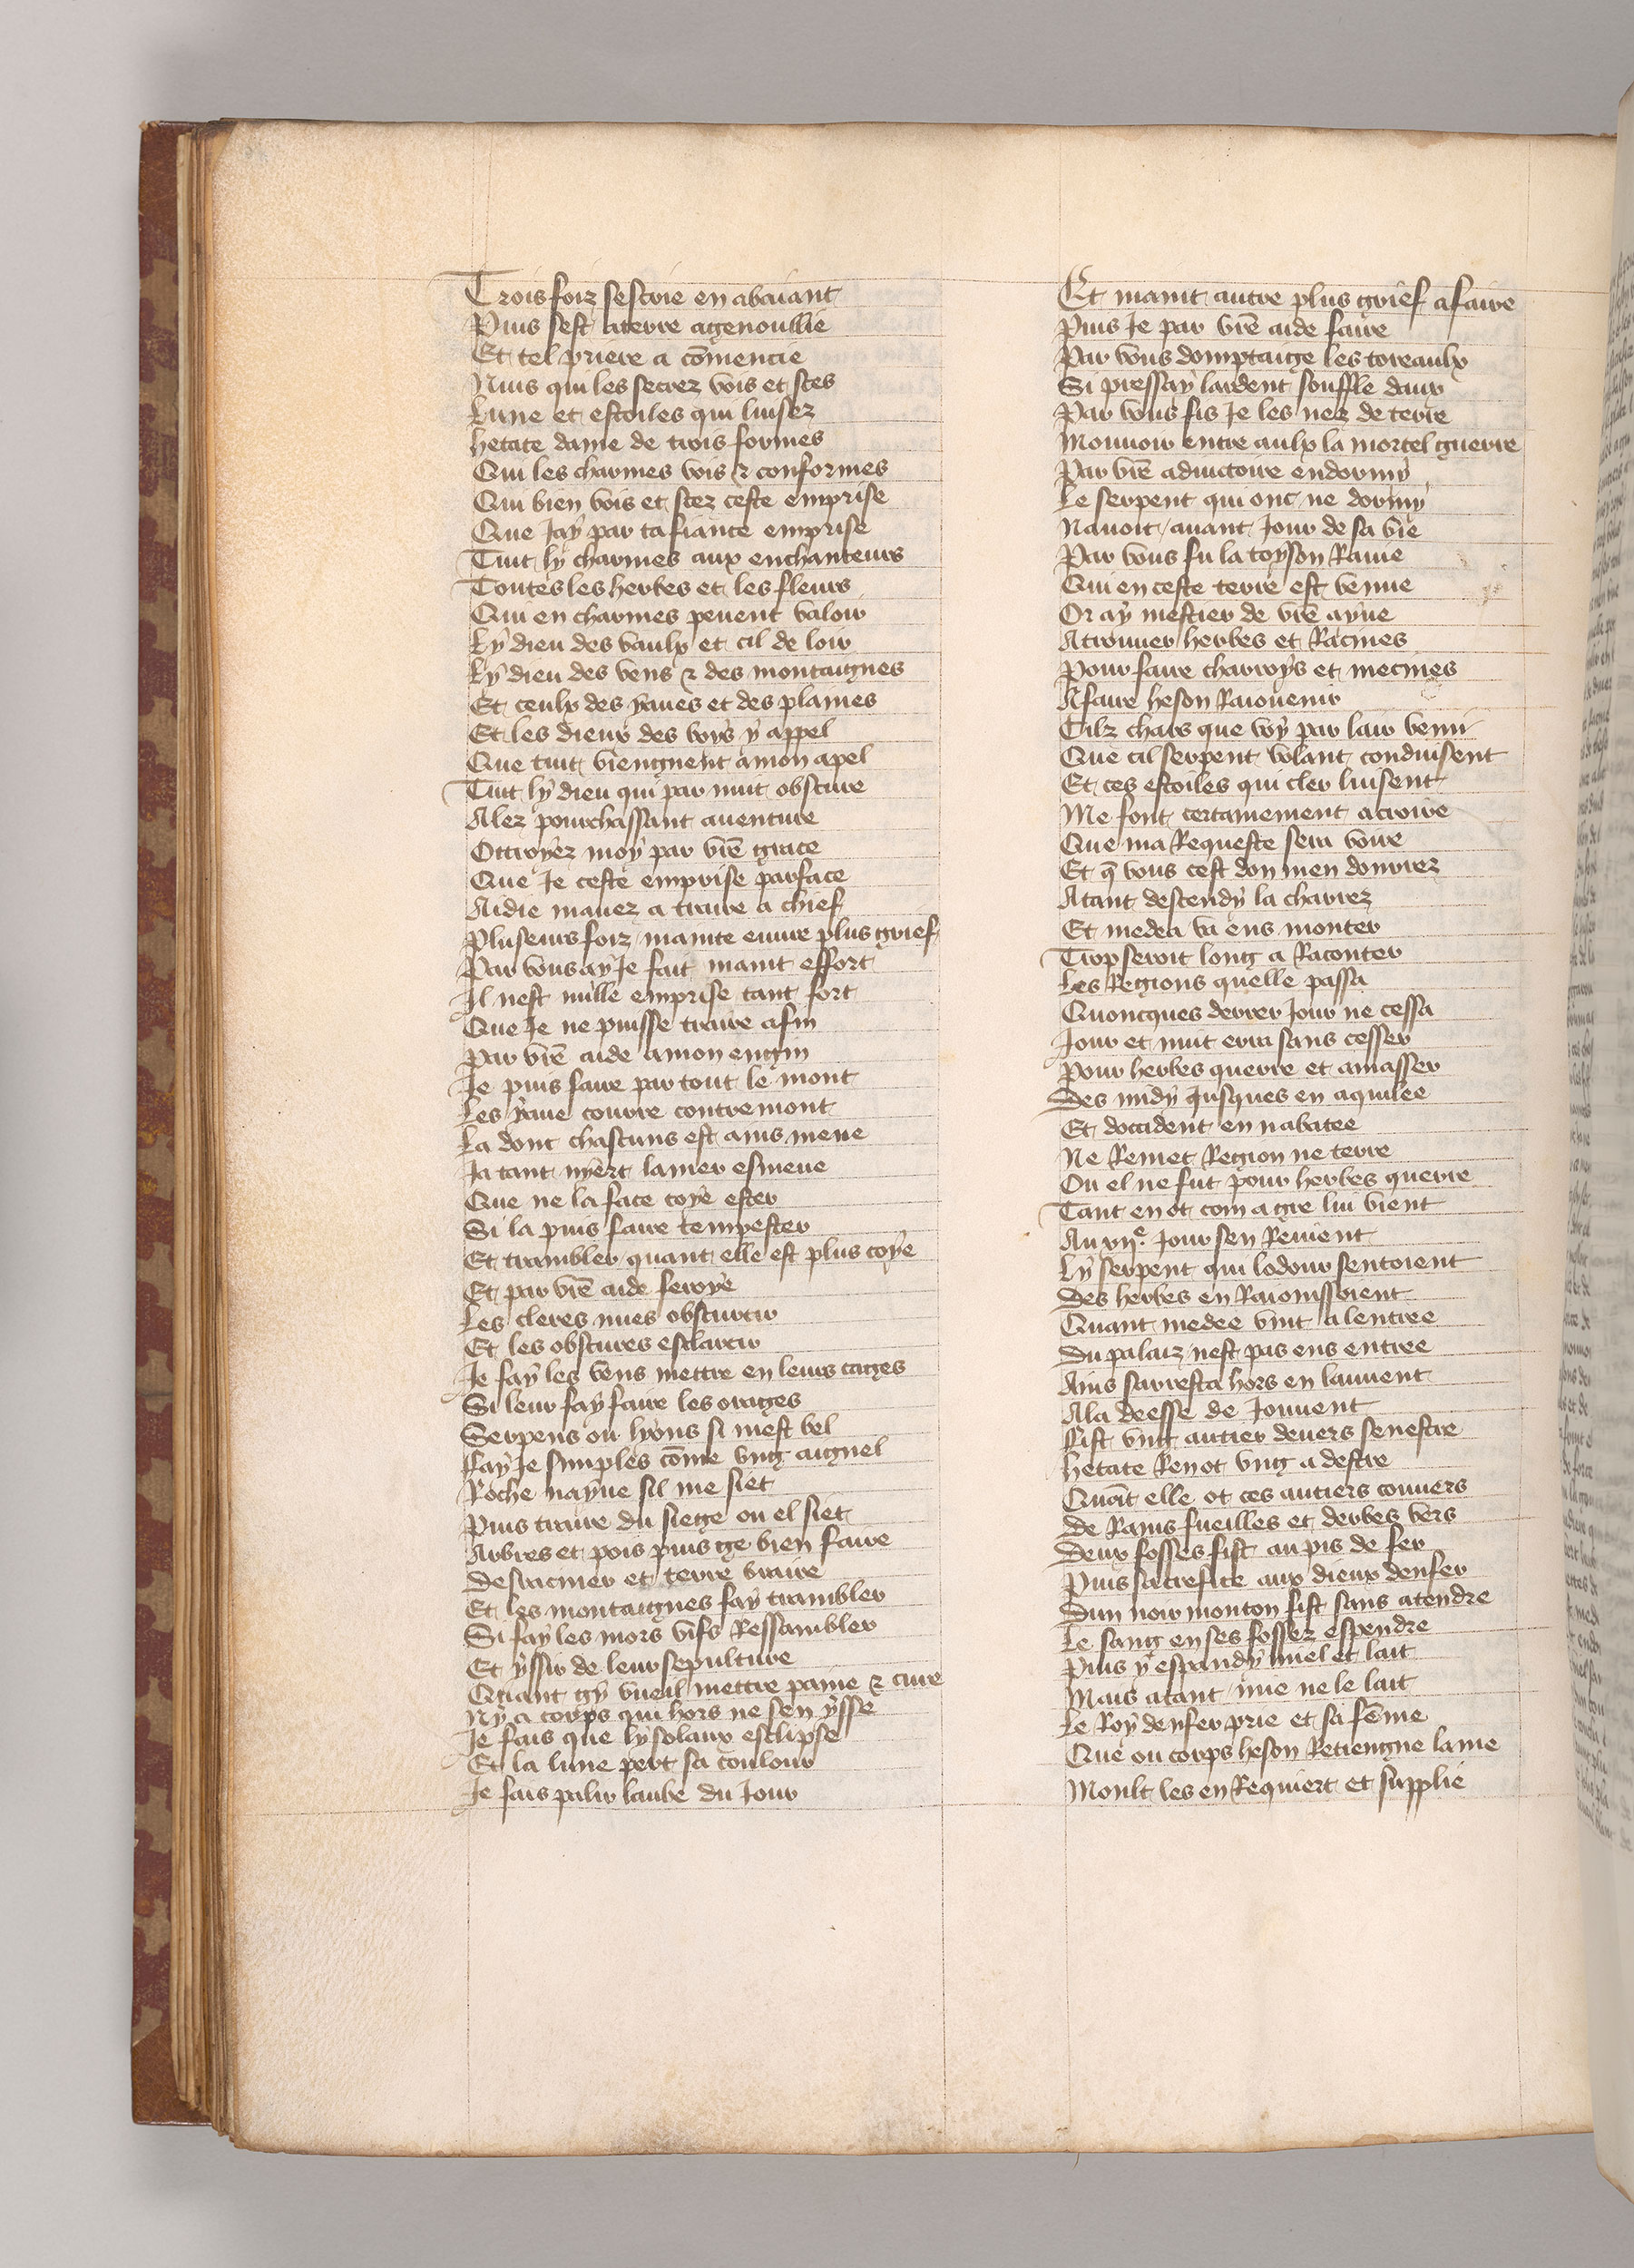 Trois foiz sescrie en abaiant
Puis sest aterre agenoullie
Et tel priere a cōmencie
Nuis qui les secrez vois et sces
Lune et estoiles qui luisez
hecate dame de trois formes
Qui les charmes vois & conformes
Qui bien vois et scez ceste emprise
Que Jaÿ par ta fiance emprise
Tuit lÿ charmes aux enchanteurs
Toutes les herbes et les fleurs
Qui en charmes peuent valoir
Lÿ dieu des vaulx et cil de loir
Lÿ dieu des vens & des montaignes
Et ceulx des ÿaues et des plaines
Et les dieux des boÿs ÿ appel
Que tuit viengnent a mon apel
Tuit lÿ dieu qui par nuit obscure
Alez pourchassant auenture
Ottroÿez moÿ par vr̄e grace
Que Je ceste emprise parface
Aidie mauez a traire a chief
Pluseurs foiz mainte euure plus grief
Par vous aÿ Je fait maint effort
Il nest nulle emprise tant fort
Que Je ne puisse traire a fin
Par vr̄e aide a mon engin
Je puis faire par tout le mont
Les ÿaue courre contremont
La dont chascuns est ains mene
Ja tant nÿert la mer esmeue
Que ne la face coÿe ester
Si la puis faire tempester
Et trambler quant elle est plus coÿe
Et par vr̄e aide feroÿe
Les cleres nues obscurcir
Et les obscures esclarcir
Je faÿ les vens mettre en leurs cages
Si leur faÿ faire les orages
Serpens ou lÿons si mest bel
Faÿ Je simples cōme vng aignel
Roche naÿue sil me siet
Puis traire du siege ou el siet
Arbres et pois puis ge bien faire
Desraciner et terre braire
Et les montaignes faÿ trambler
Si faÿ les mors vifs Ressambler
Et ÿssir de leur sepulture
Quant gÿ vueil mettre paine & cure
Nÿ a corps qui hors ne sen ÿsse
Je fais que lÿ solaux esclipse
Et la lune pert sa coulour
Je fais palir laube du Jour
Et maint autre plus grief afaire
Puis Je par vr̄e aide faire
Par vous domptaige les toreaulx
Si pressaÿ lardent souffle daux
Par vous fis Je les nez de terre
Mouuoir entre aulx la mortel guerre
Par vr̄e adiuctoire endormÿ
Le serpent qui onc ne dormÿ
Nauoit auant Jour de sa vie
Par vous fu la toÿson Rauie
Qui en ceste terre est venue
Or aÿ mestier de vr̄e aÿue
A trouuer herbes et Racines
Pour faire charroÿs et mecines
A faire heson Raiouenir
Cilz chars que voÿ par lair venir
Que cil serpent volant conduisent
Et ces estoiles qui cler luisent
Me font certainement acroire
Que ma Requeste sera voire
Et q̄ vous cest don men donrrez
Atant descendÿ la charrez
Et medea va ens monter
Trop seroit long a Raconter
Les Regions quelle passa
Quoncques derrer Jour ne cessa
Jour et nuit erra sans cesser
Pour herbes querre et amasser
Des midÿ Jusques en aquilee
Et doccident en nabatee
Ne Remet Region ne terre
Ou el ne fut pour herbes querre
Tant en ot com a gre lui vient
Au vijͤ. Jour sen Reuient
Lÿ serpent qui lodour sentoient
Des herbes en Raionissoient
Quant medee vint a lentree
Du palaiz nest pas ens entree
Ains sarresta hors en lauuent
A la deesse de Jouuent
Fist vng autier deuers senestre
Hecate Renot vng a destre
Quāt elle ot ces autiers couuers
De Rains fueilles et derbes vers
Deux fosses fist au pis de fer
Puis sacrefice aux dieux denfer
Dun noir mouton fist sans atendre
Le sang en ses fossez espendre
Puis ÿ espandÿ miel et lait
Mais atant mie ne le lait
Le Roÿ denfer prie et sa fēme
Que ou corps heson Retiengne lame
Moult les en Requiert et supplie